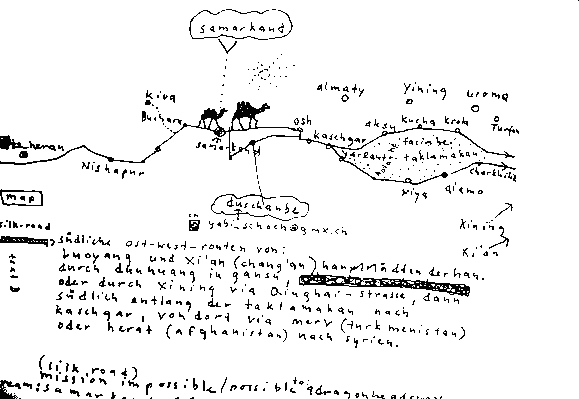 samarkand
almaty
yining
kiva
Buchara
osh
aksu
kucha
korla
Turfan
kaschgar
samarkand
taklamakan
Nishapur
charkhlik
xiya
qiemo
duschanbe
map
yabi.schoch@gmx.ch
xining
xi'an
silk-road
südliche ost-west-routen von:
luoyang und xi'an (chang'an) hauptstädten der han.
durch dunhuang in gansu,
oder durch xining via Qinghai-strasse, dann
südlich entlang der taklamakan nach
kaschgar, von dort via merv (turkmenistan)
oder herat (afghanistan) nach syrien.
(silk road)
mission impossible/possible to